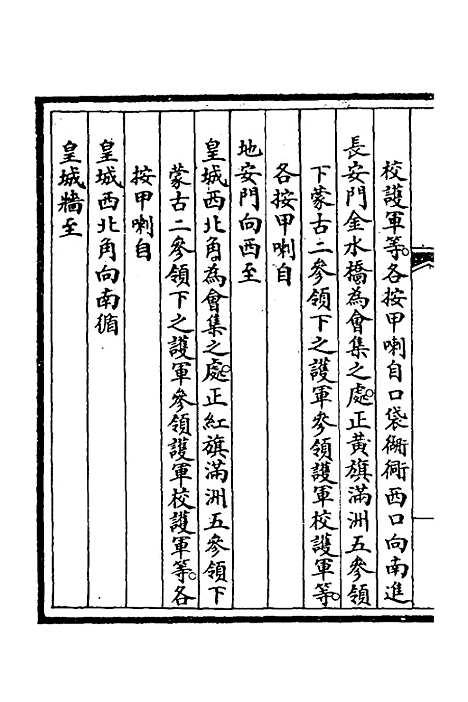 校護軍等。各按甲喇自口袋衚衕西口向南進
長安門金水橋為會集之處。正黃旗滿洲五參領
下蒙古二參領下之護軍參領護軍校護軍等。
各按甲喇自
地安門向西至
皇城西北角為會集之處。正紅旗滿洲五參領下
蒙古二參領下之護軍參領護軍校護軍等。各
按甲喇自
皇城西北角向南循
皇城牆至